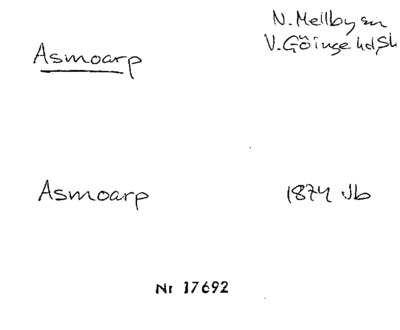 N. Mellby sn
Asmoarp
V. Göinge hd Sk
Asmoarp
1874 Jb
Nr 17692